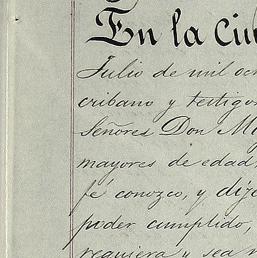 En la Ciu
Julio de mil och
cribano y testigos
Señores Don M
mayores de edad,
fé conozco, y dije
poder cumplido,
requiera y sea n